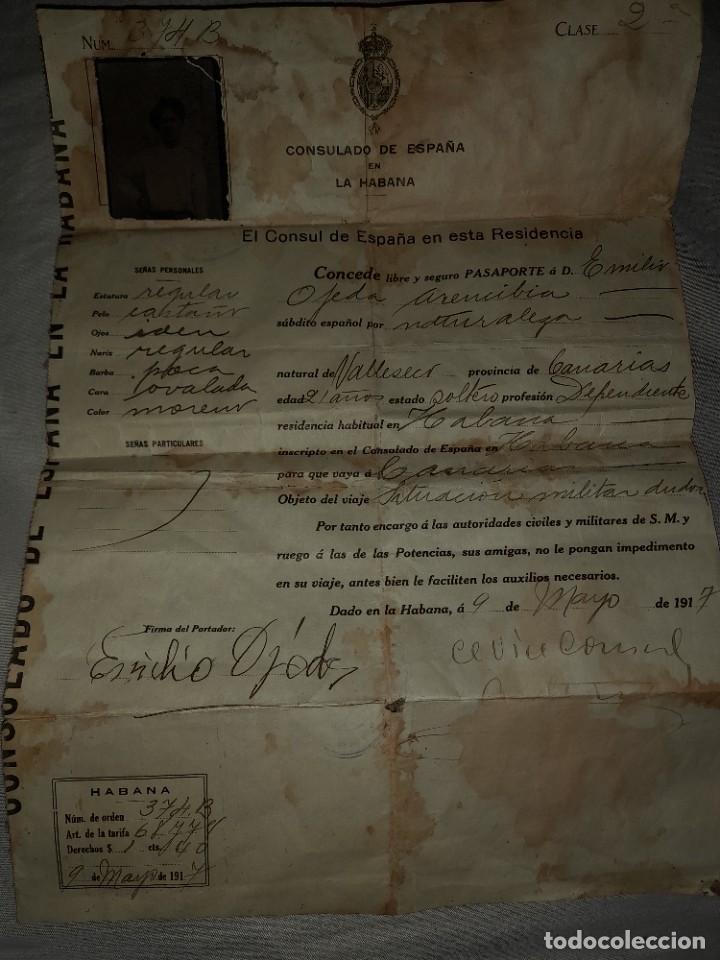 NÚM. 374 B
CLASE 2ª
CONSULADO DE ESPAÑA
EN
LA HABANA
CONSULADO DE ESPAÑA EN LA HABANA
El Consul de España en esta Residencia
SEÑAS PERSONALES
Estatura regular
Pelo castaño
Ojos iden
Nariz regular
Barba poca
Cara ovalada
Color moreno
SEÑAS PARTICULARES
Concede libre y seguro PASAPORTE á D. Emilio
Ojeda Arencibia
súbdito español por naturaleza
natural de Valleseco provincia de Canarias
edad 21 años estado soltero profesión Dependiente
residencia habitual en Habana
inscripto en el Consulado de España en Habana
para que vaya á Canarias
Objeto del viaje Situación militar
Por tanto encargo á las autoridades civiles y militares de S. M. y
ruego á las de las Potencias, sus amigas, no le pongan impedimento
en su viaje, antes bien le faciliten los auxilios necesarios.
Dado en la Habana, á 9 de Mayo de 1917
Firma del Portador:
Emilio Ojeda
Vice Consul
HABANA
Núm. de orden 374 B
Art. de la tarifa
Derechos $ 1 cts. 40
9 de Mayo de 1917
todocoleccion